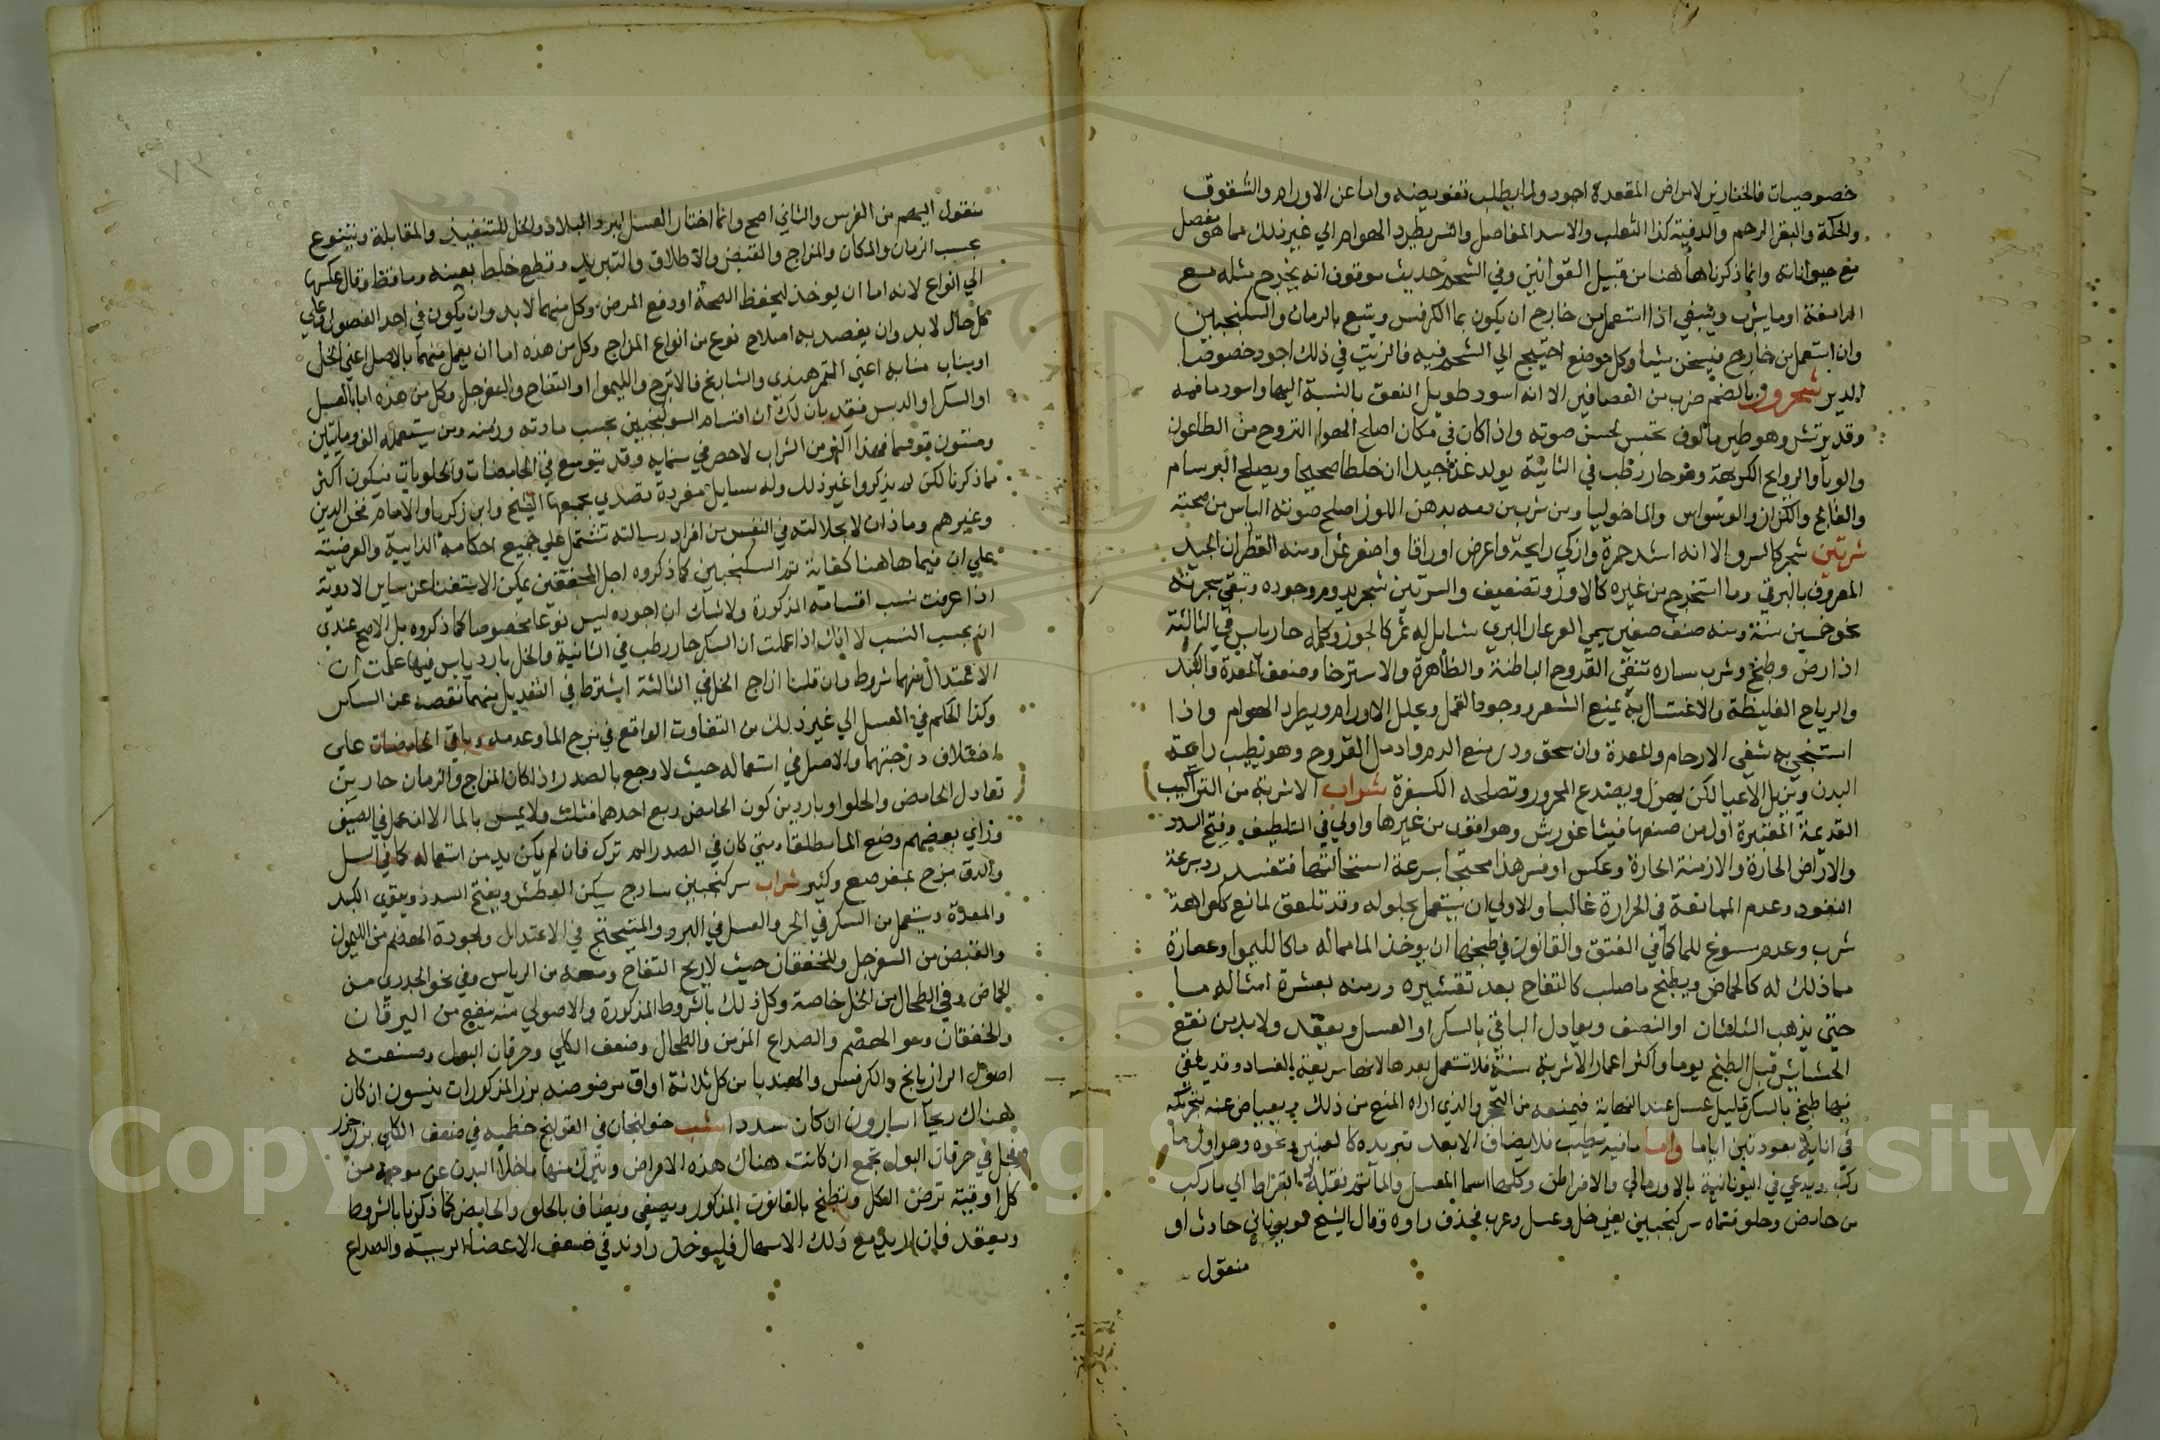 خصوصيات فالخنازير لامراض المقعدة اجود ولما يطلب تغويضه واما عن الاورام والشقوق
والحكة والبقر الرحم والدفية كذا الثعلب والاسد المفاصل والنسر يطرد الهوام الي غير ذلك مما هو مفصل
مع حيواناته وانما ذكرناها هنا من قبيل القوانين وفي الشحم حديث موقوف انه يخرج مثله مع
المرامغة او ما يشرب وينبغي اذا استعمل من خارج ان يكون بما الكرفس ويتبع بالرمان والسكنجبين
وان استعمل من خارج فيسخن شيا وكل موضع احتيج الي الشحم فيه فالزيت في ذلك اجود خصوصا
الدير شحرور بالضم ضرب من العصافير الا انه اسود طويل العنق بالنسبة اليها واسود ما فيه
وقد يرتش وهو طير مالوف يحبس لحسن صوته واذا كان في مكان اصلح الهوا التروح من الطاعون
والوبا والروايح الكريهة وهو حار رطب في الثانية يولد غذا جيدا ان خلطا صحيحا ويصلح البرسام
والفالج والكزاز والوسواس والماخوليا ومن شرب من دمه بدهن اللوز اصلح صوته الياس من صحته
شربين شجر كالسرو الا انه اشد حمرة وازكي رايحة واعرض اوراقا واصغر ثمرا ومنه القطران الجيد
المعروف بالبرقي وما استخرج من غيره كالارز وتضعيف والشربين شجر يدوم وجوده وتبقي شجرته
نحو خمسين سنة ومنه صنف صغير يسمي العرعار البري شايل له ثمر كالجوز وكله حار يابس في الثالثة
اذا رض وطبخ وشرب ساره تنقي القروح الباطنة والظاهرة والاسترخا وضعف المعدة والكبد
والرياح الغليظة والاغتسال به يمنع الشعر وجود القمل ويحلل الاورام ويطرد الهوام واذا
استنجي به شفي الارحام والمعدة وان سحق وذر منع الدم وادمل القروح وهو يطيب رايحة
البدن ويزيل الاعيا لكن يهزل ويصدع المحرور وتصلحه الكسفرة شراب الاشربة من التراكيب
القديمة المعتبرة اول من صنعها فيثاغورش وهو اقوي من غيرها واولي في التلطيف وفتح السدد
والامراض الحارة والازمنة الحارة وعكس اوفس هذا محتجا بسرعة استحالتها فتفسد رد بسرعة
النفود وعدم الممانعة في الحرارة غالبا والاولي ان يستعمل بجلوله وقد تلعق لمانع ككراهة
شرب وعدم سوغ للما كما في الفتق والقانون في طبخها ان يوخذ الما مما له ماكالليموا وعصارة
مما ذلك له كالحماض ويطبخ ما صلب كالتفاح بعد تقشيره ورمنه بعشرة امثاله ما
حتي يذهب الثلثان او النصف ويعادل الباقي بالسكر او العسل ويعقد ولا بد من نقع
الحشايش قبل الطبخ يوما واكثر اعمار الاشربة سنة فلا تستعمل بعدها لانها سريعة الفساد وقد يلقي
فيها طبخ بالسكر قليل عسل عند النهاية فيمنعه من التحجر والذي اراه المنع من ذلك ببياض عنه بتحريكه
في انايه بعود تين اياما واما ما فيه طيب فلا يضاف الا بعد تبريده كالعنبر ونحوه وهو اول ما
ركب ويدعي في اليونانية بالاورمالي والافراطن وكلها اسما العسل والما ثم نقله ابقراط الي ما ركب
من حامض وحلو فسماه سركنجبين يعني خل وعسل وعرب فحذف راوه وقال الشيخ هو يوناني حادث او
منقول
منقول اليهم من الفرس والثاني اصح وانما اختار العسل لبرد البلاد والخل للتنفيذ والمقابلة ويتنوع
بحسب الزمان والمكان والمزاج والقبض والاطلاق والتبريد وقطع خلط بعينه وما فقط وقال عكسها
الي انواع لانه اما ان يوخذ لحفظ الصحة او دفع المرض وكل منهما لا بد وان يكون في احد الفصول وعلي
كل حال لا بد وان يقصد به اصلاح نوع من انواع المزاج وكل من هذه اما ان يعمل منهما بالاصل اعني الخل
او بناب منابه اعني التمر هندي والشايع فالاترج والليموا او التفاح والسفرجل وكل من هذه اما بالعسل
او السكر او الدبس فقد بان لك ان اقسام السركنجبين بحسب مادته وزمنه ومن يستعمله الف ومايتين
وستون قسما فهذا اكثر من الشراب لا حصر في سمايه وقد يتوسع في الحامضات والحلويات فيكون اكثر
مما ذكرنا لكن لم يذكروا غير ذلك وله رسايل مفردة تصدي بجمعها الشيخ وابن زكريا والامام فخر الدين
وغيرهم وما ذاك الا لجلالته في النفس من افراد رسالته تشتمل علي جميع احكامه الذاتية والعرضية
علي ان فيما هاهنا كفاية تم السكنجبين كما ذكروه اجل المحققين يمكن الاستغنا عن ساير الادوية
اذا عرفت نسب اقسامه المذكورة ولا شك ان اجوده ليس نوعا مخصوصا كما ذكروه بل الاصح عندي
انه بحسب النسب لانك اذا علمت ان السكر حار رطب في الثانية والخل بارد يابس فيها علمت ان
الاعتدال منهما شروط وان قلنا ان اج الخل في الثالثة اشترط في التعديل بينهما نقصه عن السكر
وكذا الكلام في العسل الي غير ذلك من التفاوت الواقع في مزج الما وعدمه وباقي الحامضات علي
اختلاف درجتهما والاصل في استعماله حيث لا وجع بالصدر اذا كان المزاج والزمان حارين
تعادل الحامض والحلو او باردين كون الحامض ربع احدهما فثلث ولا يمس بالما الا ان عمل في الصيف
وراي بعضهم وضع الما مطلقا ومتي كان في الصدر الم ترك فان لم يكن بد من استعماله كما في السل
والدق مزج بنحو صمغ وكثير شراب سركنجبين سادج يسكن العطش ويفتح السدد ويقوي الكبد
والمعدة ويستعمل من السكر في الحر والعسل في البرد والميبختج في الاعتدال ولجودة الهضم من الليمون
والقبض من السفرجل وللخفقان حيث لا ريح التفاح ومعه من الرياس وفي نحو الجدري من
الحماض وفي الطحال من الخل خاصة وكل ذلك بالشروط المذكورة والاصولي منه ينفع من اليرقان
والخفقان وسو الهضم والصداع المزمن والطحال وضعف الكلي وحرقان البول وصنعته
اصول الرازيانج والكرفس والهندبا من كل ثلاثة اواق مرضوضه بزر المذكورات ينسون ان كان
هناك ريحا اسارون ان كان سددا شب خولنجان في القولنج خطميه في ضعف الكلي بزر جزر
وفجل في حرقان البول يجمع ان كانت هناك هذه الامراض ويترك منها ما خلا البدن عن موجبه من
كل اوقيته ترض الكل ويطبخ بالقانون المذكور ويصفي ويضاف بالحلو والحامض كما ذكرنا بالشروط
ويعقد فان اريد مع ذلك الاسهال فليوخذ راوند في ضعف الاعضا الرييسة والصداع
Copyright © King Saud University